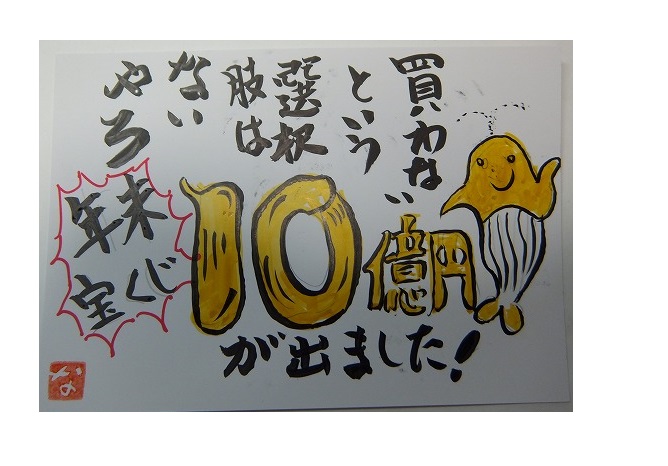 買わない
という
選択
肢は
ない
やろ
10億円
が出ました!
年末
宝くじ
な